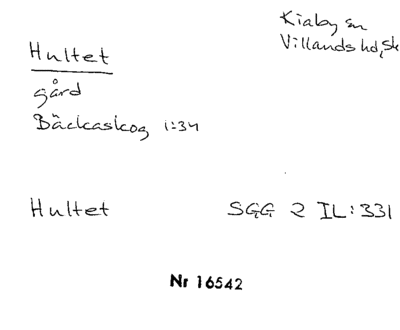 Hultet
Kiaby sn
Villands hd, Sk
gård
Bäckaskog 1:34
Hultet SGG 2 IL:331
Nr 16542